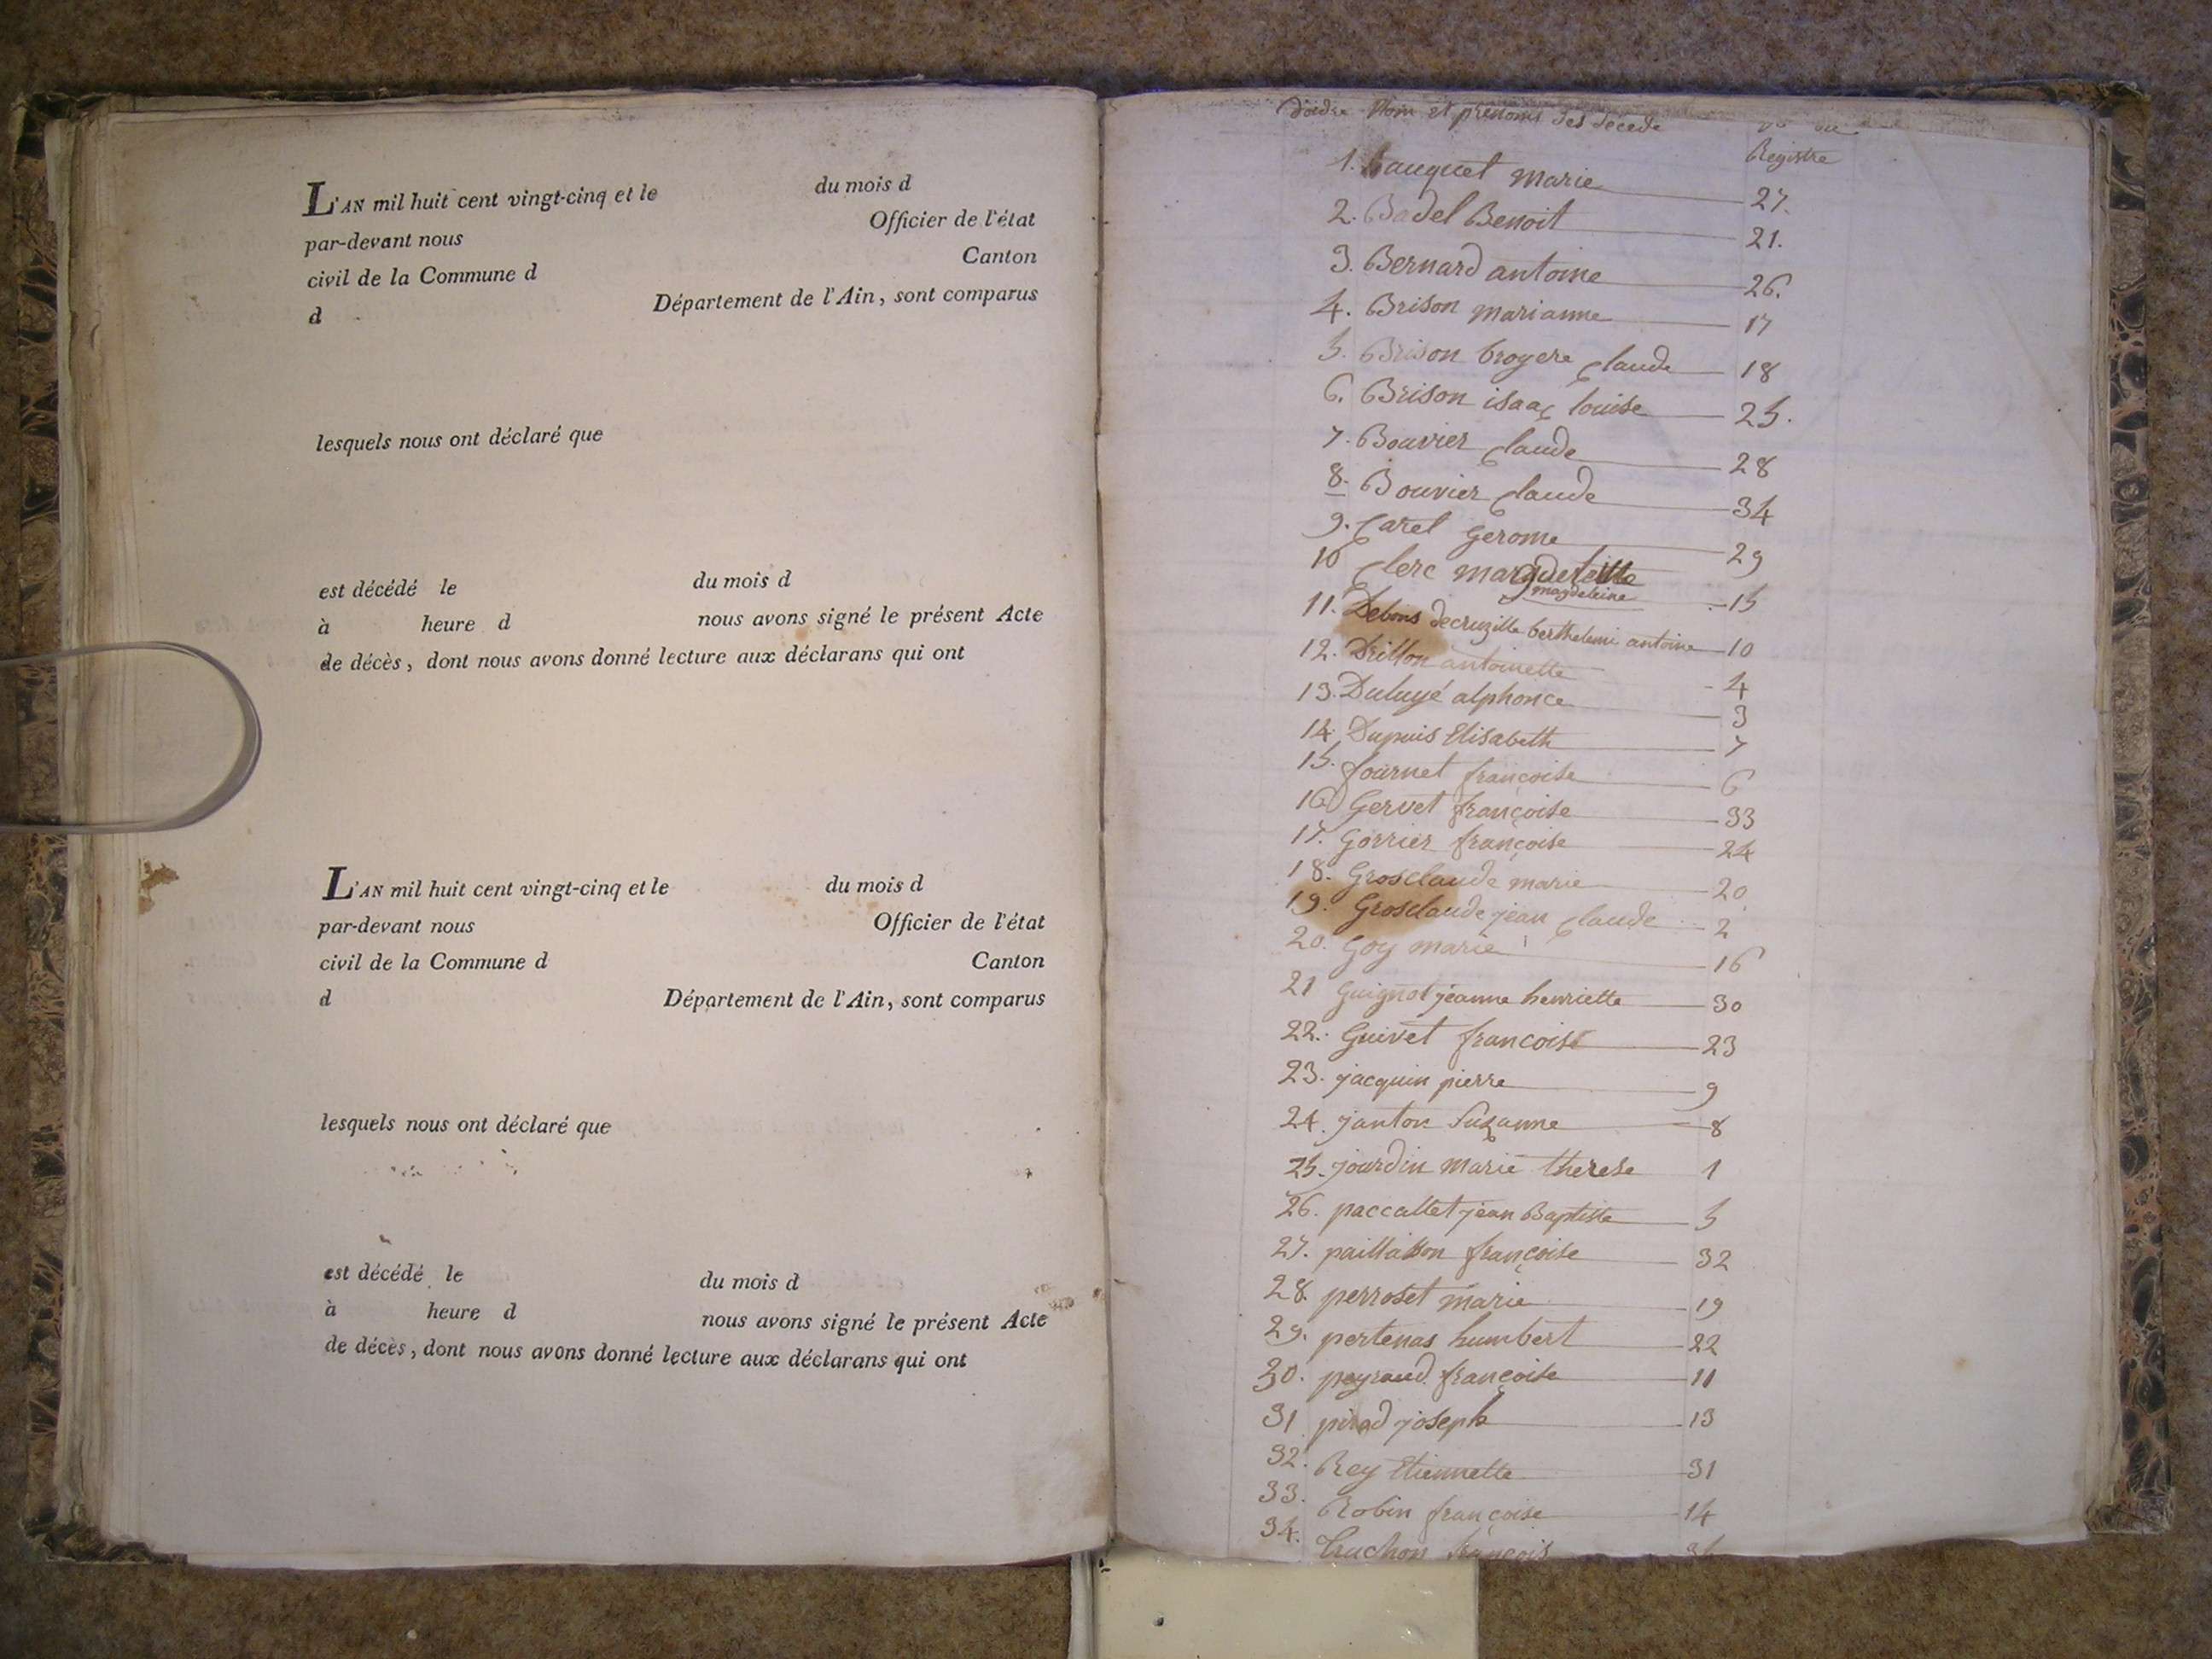 L'AN mil huit cent vingt-cinq et le du mois d
par-devant nous Officier de l'état
civil de la Commune d Canton
d Département de l'Ain, sont comparus
lesquels nous ont déclaré que
est décédé le du mois d
à heure d nous avons signé le présent Acte
de décès, dont nous avons donné lecture aux déclarans qui ont
L'AN mil huit cent vingt-cinq et le du mois d
par-devant nous Officier de l'état
civil de la Commune d Canton
d Département de l'Ain, sont comparus
lesquels nous ont déclaré que
est décédé le du mois d
à heure d nous avons signé le présent Acte
de décès, dont nous avons donné lecture aux déclarans qui ont
d'ordre Nom et prenoms des décédé
Registre
1. Bauquet Marie 27.
2. Badel Benoit 21.
3. Bernard antoine 26.
4. Brison marianne 17
5. Brison broyere Claude 18
6. Brison isaac louise 25.
7. Bouvier Claude 28
8. Bouvier Claude 34
9. Carel Gerome 29
10 Clerc magdeleine 15
11. Debons decruzille berthelemi antoine 10
12. Drillon antoinette 4
13. Duluyé alphonce 3
14. Dupuis Elisabeth 7
15. fournet francoise 6
16 Gervet françoise 33
17. Gorrier françoise 24
18. Grosclaude marie 20
19. Grosclaude jean Claude 2
20. Goy marie 16
21 Guignot jeanne henriette 30
22. Guivet francoise 23
23. jacquin pierre 9
24. janton Suzanne 8
25. jourdin marie therese 1
26. paccallet jean Baptiste 5
27. paillasson françoise 32
28. perroset marie 19
29. pertenas humbert 22
30. peyraud françoise 11
31 pirod joseph 13
32. Rey Etiennette 31
33. Robin françoise 14
34. Truchon françois